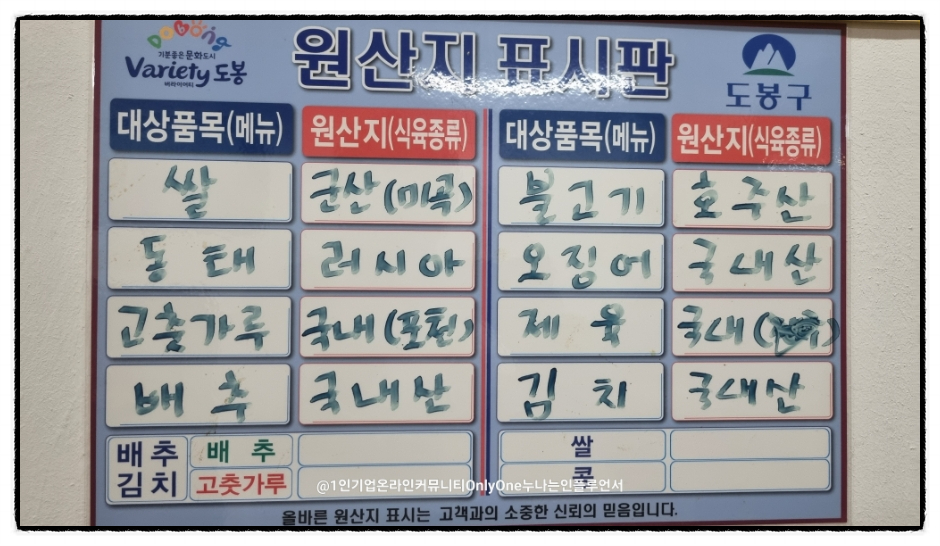 Dobong
기분좋은 문화도시
Variety 도봉
버라이어티
원산지 표시판
도봉구
대상품목(메뉴) 원산지(식육종류) 대상품목(메뉴) 원산지(식육종류)
쌀 군산(미곡) 불고기 호주산
동태 러시아 오징어 국내산
고춧가루 국내(포천) 제육 국내
배추 국내산 김치 국내산
배추 배추 쌀
김치 고춧가루 콩
@1인기업온라인커뮤니티OnlyOne누나는인플루언서
올바른 원산지 표시는 고객과의 소중한 신뢰의 믿음입니다.